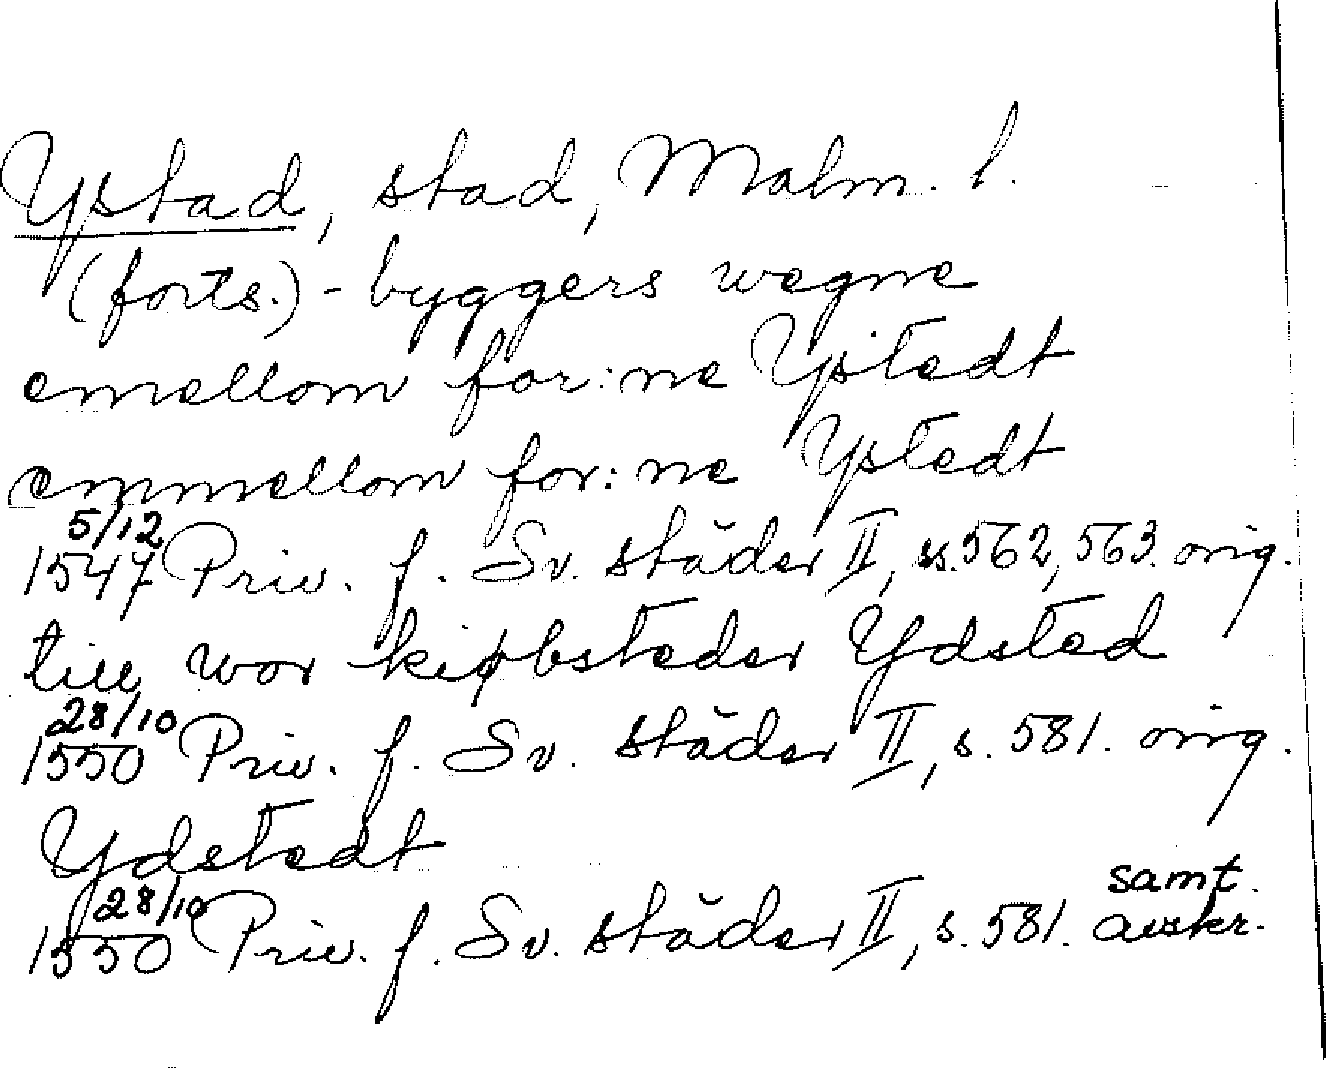 Ystad, stad, Malm. l.
(forts.) - byggers wegne
emellom for:ne Ystedt
emmellom for:ne Ystedt
5/12
1547 Priv. f. Sv. städer II, s. 562, 563. orig.
till wor kiøbsteder Ydsted
28/10
1550 Priv. f. Sv. städer II, s. 581. orig.
Ydstedt
28/10 samt.
1550 Priv. f. Sv. städer II, s. 581. avskr.